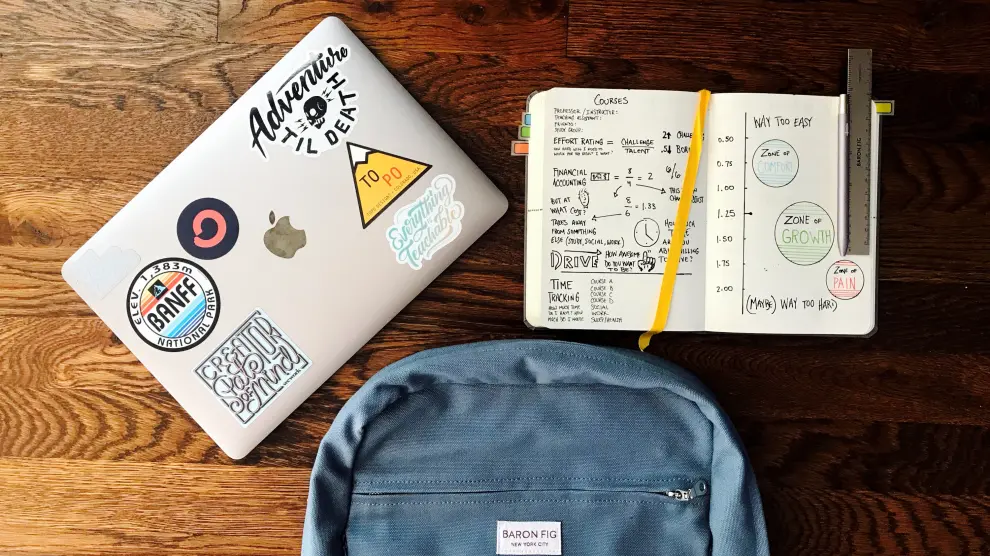 Adventure
'TIL DEATH
TO
PO
Everything
Teachable
ELEV. 1,383m
BANFF
NATIONAL PARK
CREATOR
State
of Mind
COURSES
PROFESSOR / INSTRUCTOR:
TEACHING ASSISTANT:
FRIENDS:
STUDY GROUP:
EFFORT RATING = CHALLENGE
TALENT
FINANCIAL
ACCOUNTING
= 8
4
= 2
6/6
BUT AT
WHAT COST?
8
6
= 1.33
TAKES AWAY
FROM SOMETHING
ELSE (STUDY, SOCIAL, WORK)
DRIVE
HOW AWESOME
DO YOU WANT
TO BE?
TIME
TRACKING
HOW MUCH TIME
DO I HAVE? HOW
MUCH DO I NEED?
COURSE A
COURSE B
COURSE C
COURSE D
SOCIAL
WORK
SLEEP/HEALTH
WAY TOO EASY
0.50
0.75
1.00
1.25
1.50
1.75
2.00
ZONE OF
COMFORT
ZONE OF
GROWTH
ZONE OF
PAIN
(MAYBE) WAY TOO HARD
BARON FIG
BARON FIG
NEW YORK CITY